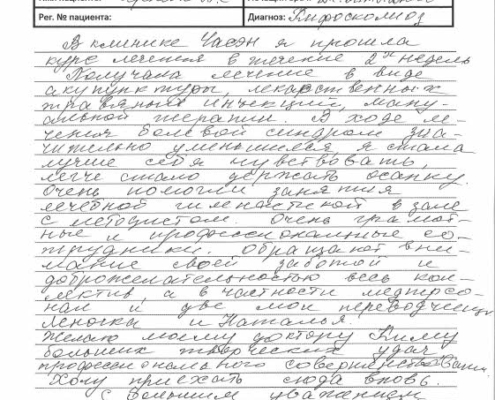 Рег. № пациента: Диагноз: Кифосколиоз
В клинике Часэн я прошла
курс лечения в течение 2х недель
Получала лечение в виде
акупунктуры, лекарственных
травяных инъекций, ману-
альной терапии. В ходе ле-
чения болевой синдром зна-
чительно уменьшился, я стала
лучше себя чувствовать,
легче стало держать осанку.
Очень помогли занятия
лечебной гимнастикой в зале
с методистом. Очень грамот-
ные и профессиональные со-
трудники. Обращают вни-
мание своей заботой и
доброжелательностью весь кол-
лектив, а в частности медперсо-
нал и две мои переводчицы
Леночка и Наталья.
Желаю моему доктору Киму
больших творческих удач
профессионального совершенства
Хочу приехать сюда вновь.
С большим уважением